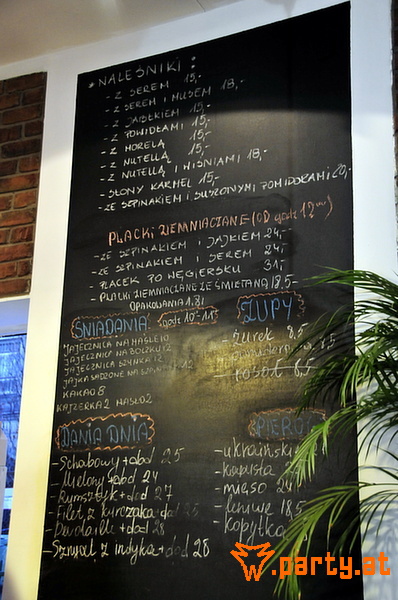 NALEŚNIKI:
- Z SEREM 15,-
- Z SEREM I MUSEM 18,-
- Z JABŁKIEM 15,-
- Z POWIDŁAMI 15,-
- Z MORELĄ 15,-
- Z NUTELLĄ 15,-
- Z NUTELLĄ I WIŚNIAMI 18,-
- SŁONY KARMEL 15,-
- ZE SZPINAKIEM I SUSZONYMI POMIDORAMI 20,-
PLACKI ZIEMNIACZANE (OD godz 12⁰⁰)
- ZE SZPINAKIEM I JAJKIEM 24,-
- ZE SZPINAKIEM I SEREM 24,-
- PLACEK PO WĘGIERSKU 31,-
- PLACKI ZIEMNIACZANE ZE ŚMIETANĄ 18,5-
OPAKOWANIA 1,8!
ŚNIADANIA godz 10-11³⁰
JAJECZNICA NA MAŚLE 10
JAJECZNICA NA BOCZKU 12
JAJECZNICA SZYNKA 12
JAJKA SADZONE NA 12
KAKAO 8
KAJZERKA 2 MASŁO 2
ZUPY
- żurek 8,5
- pomidorowa 8,5
- rosół 6,5
DANIA DNIA
- Schabowy + dod 25
- Mielony + dod 24
- Rumsztyk + dod 27
- Filet z kurczaka + dod 25
- + dod 28
- Sznycel z indyka + dod 28
PIEROGI
- ukraińskie
- kapusta
- mięso 24
- leniwe 18,5
- kopytka
w.party.at